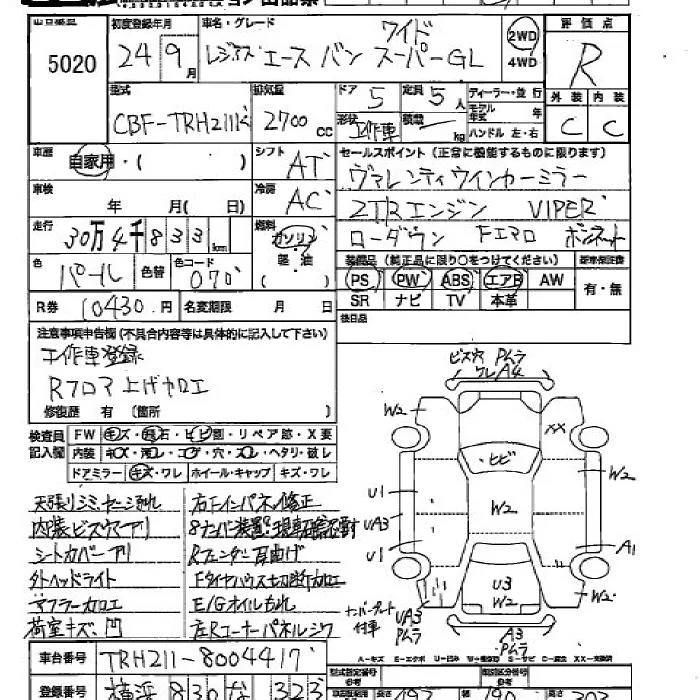 出品番号 初度登録年月 車名・グレード 評価点
5020 24年 9月 レジアスエース バン ワイド スーパーGL 2WD 4WD R
型式 排気量 ドア 定員 ディーラー・並行 外装 内装
CBF-TRH211K 2700cc 5 5人 モデル年式 年 C C
形状 工作車 積載 kg ハンドル 左・右
車歴 自家用・( ) シフト AT セールスポイント(正常に機能するものに限ります)
車検 年 月( 日) 冷房 AC ヴァレンティウインカーミラー
走行 30万4千833km 燃料 ガソリン 2TRエンジン VIPER
軽・油 ローダウン Fエアロ ボンネット
色 パール 色替 色コード 070 ( ) 装備品(純正品に限り○をつけてください) 新車保証書
PS PW ABS エアB AW 有・無
R券 10430円 名変期限 月 日 SR ナビ TV 本革
後日品
注意事項申告欄(不具合内容等は具体的に記入して下さい)
工作車登録
Rフロア上げ加工
修復歴 有 (箇所 )
検査員記入欄 FW キズ・飛石・ヒビ割・リペア跡・X要
内装 キズ・汚レ・コゲ・穴・スレ・ヘタリ・破レ
ドアミラー キズ・ワレ ホイール・キャップ キズ・ワレ
天張りシミ、ヤニ汚れ 右Fインパネ修正
内装ビス穴アリ
シートカバーアリ Rフェンダー耳曲げ
外ヘッドライト Fタイヤハウス切断加工
マフラー加工 E/Gオイルもれ
荷室キズ、凹 左Rコーナーパネルシワ
ビス穴 Pムラ
ワレ A4
W2 XX
ヒビ
W2 W2
U1
UA3
U1 A1
U3
W2 W2
ナンバープレート付車 UA3 Pムラ
A3
Pムラ
A-キズ E-エクボ U-凹み W-補修跡 S-サビ C-腐食 XX-交換済
車台番号 TRH211-8004417 型式指定番号 類別区分番号
登録番号 横浜 830 な 323